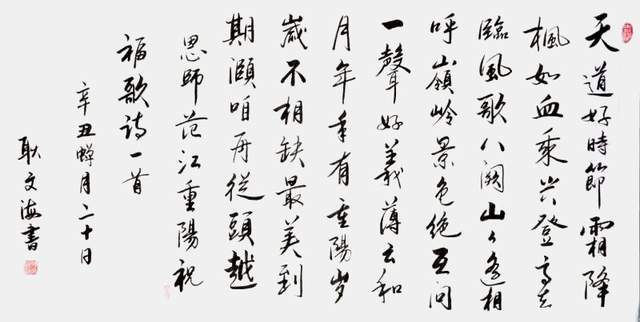 天道好時節霜降
楓如血乘兴登高去
臨風歌八阕山々遙相
呼嶺岭景色绝互问
一聲好義薄云和
月年秊有重陽岁
歲不相缺最美到
期頤咱再從頭越
恩師范江重陽祝
福歌诗一首
辛丑蝉月二十日
耿文海書